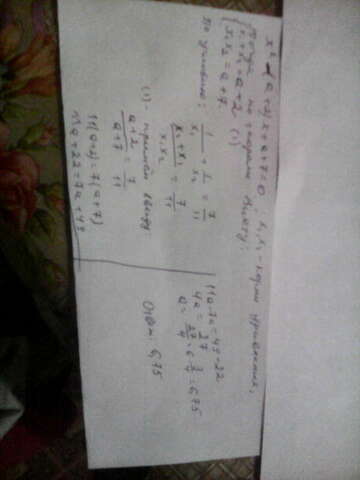 x² - (a+2)x + a+7=0; x₁, x₂ - корни уравнения,
тогда по теореме Виета:
{ x₁+x₂ = a+2
{ x₁x₂ = a+7. (1)
По условию: 1/x₁ + 1/x₂ = 7/11
(x₂+x₁)/(x₁x₂) = 7/11
(1) - примем ввиду:
(a+2)/(a+7) = 7/11
11(a+2) = 7(a+7)
11a+22=7a+49
11a-7a=49-22
4a = 27
a = 27/4 = 6 3/4 = 6,75
Ответ: 6,75